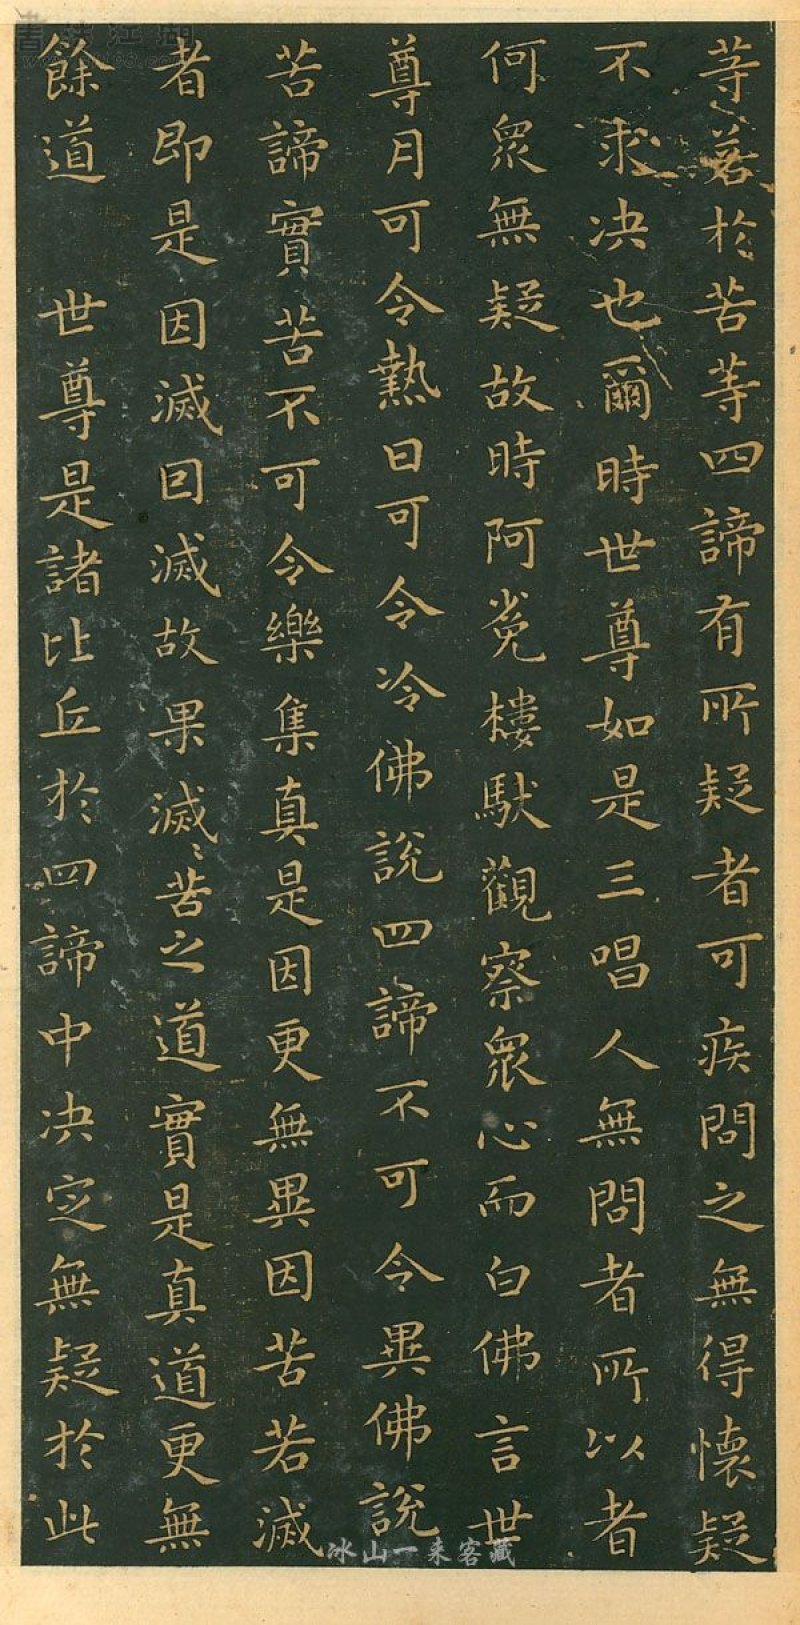 等若於苦等四諦有所疑者可疾問之無得懷疑
不求决也爾時世尊如是三唱人無問者所以者
何衆無疑故時阿㝹樓馱觀察衆心而白佛言世
尊月可令熱日可令冷佛說四諦不可令異佛說
苦諦實苦不可令樂集真是因更無異因苦若滅
者即是因滅因滅故果滅滅苦之道實是真道更無
餘道　世尊是諸比丘於四諦中决定無疑於此
冰山一来客藏
書法江湖